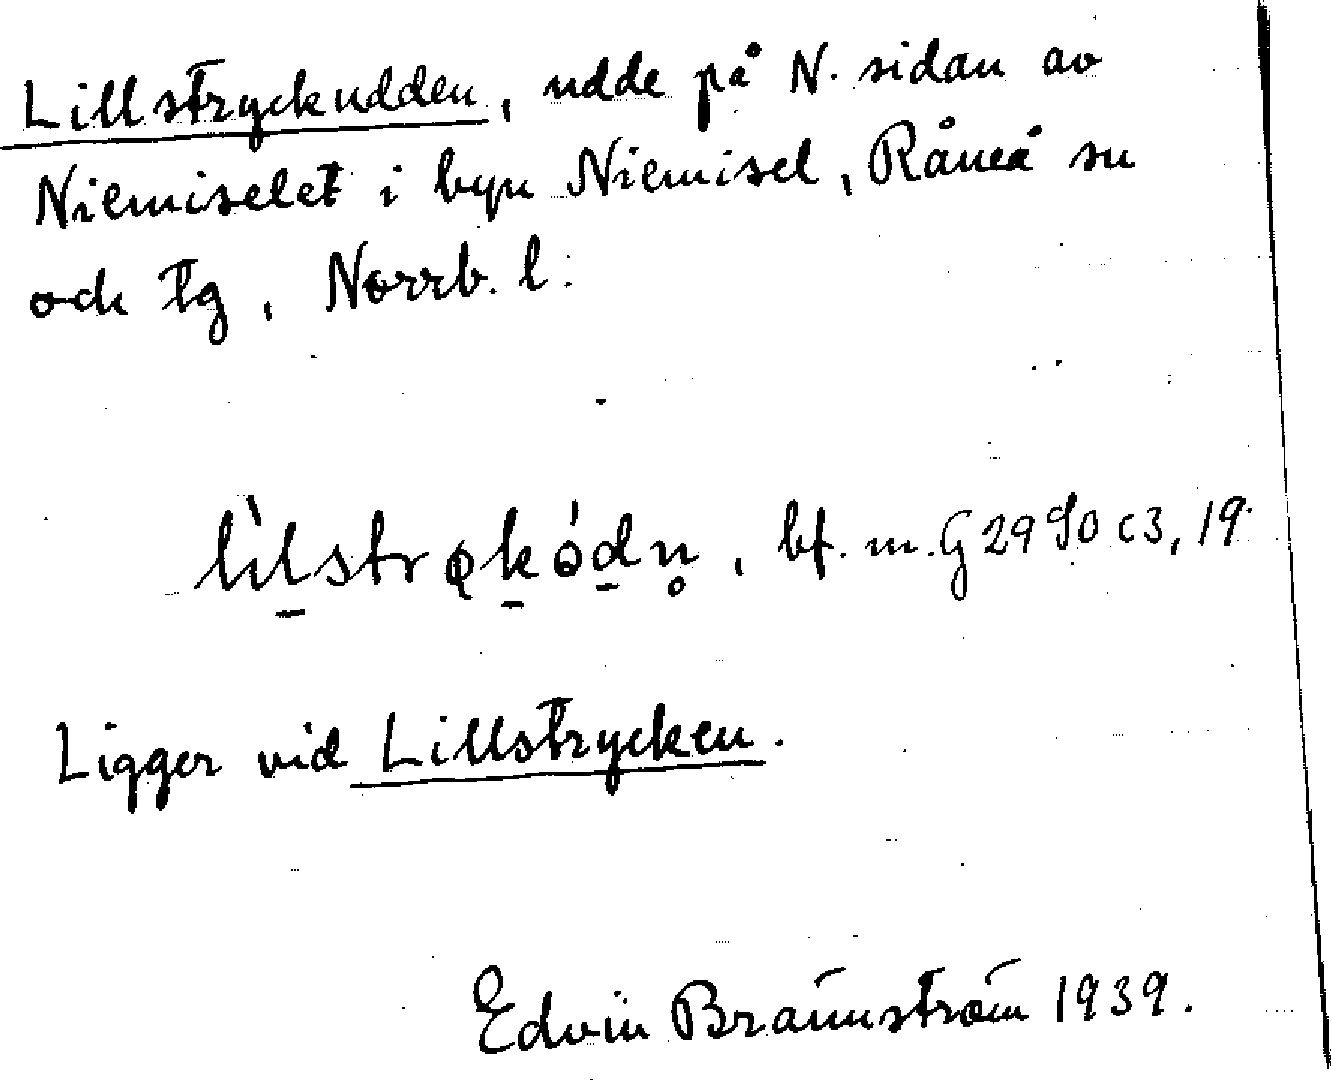 Lillstryckudden, udde på N. sidan av
Niemiselet i byn Niemisel, Råneå sn
och tg, Norrb. l:
bf. m. G 2990 c3, 19.
Ligger vid Lillstrycken.
Edvin Brännström 1939.